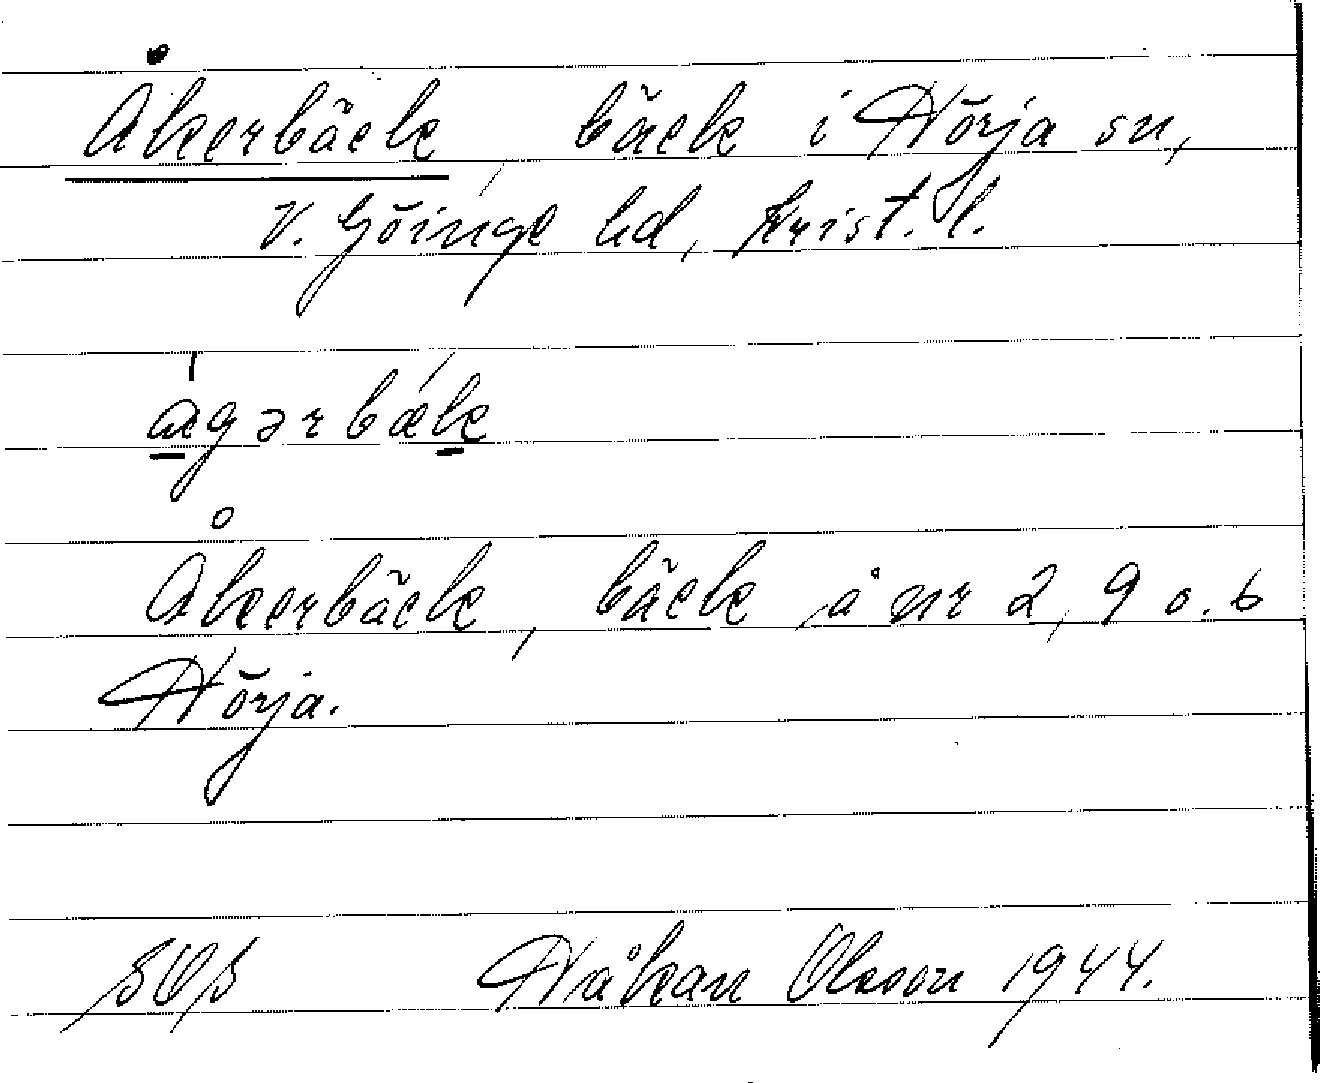 Åkerbäck, bäck i Nörja sn,
V. Göinge hd, Krist. l.
ágərbæ̀k
Åkerbäck, bäck å nr 2, 9 o. 6
Nörja.
SOS Håkan Olsson 1944.